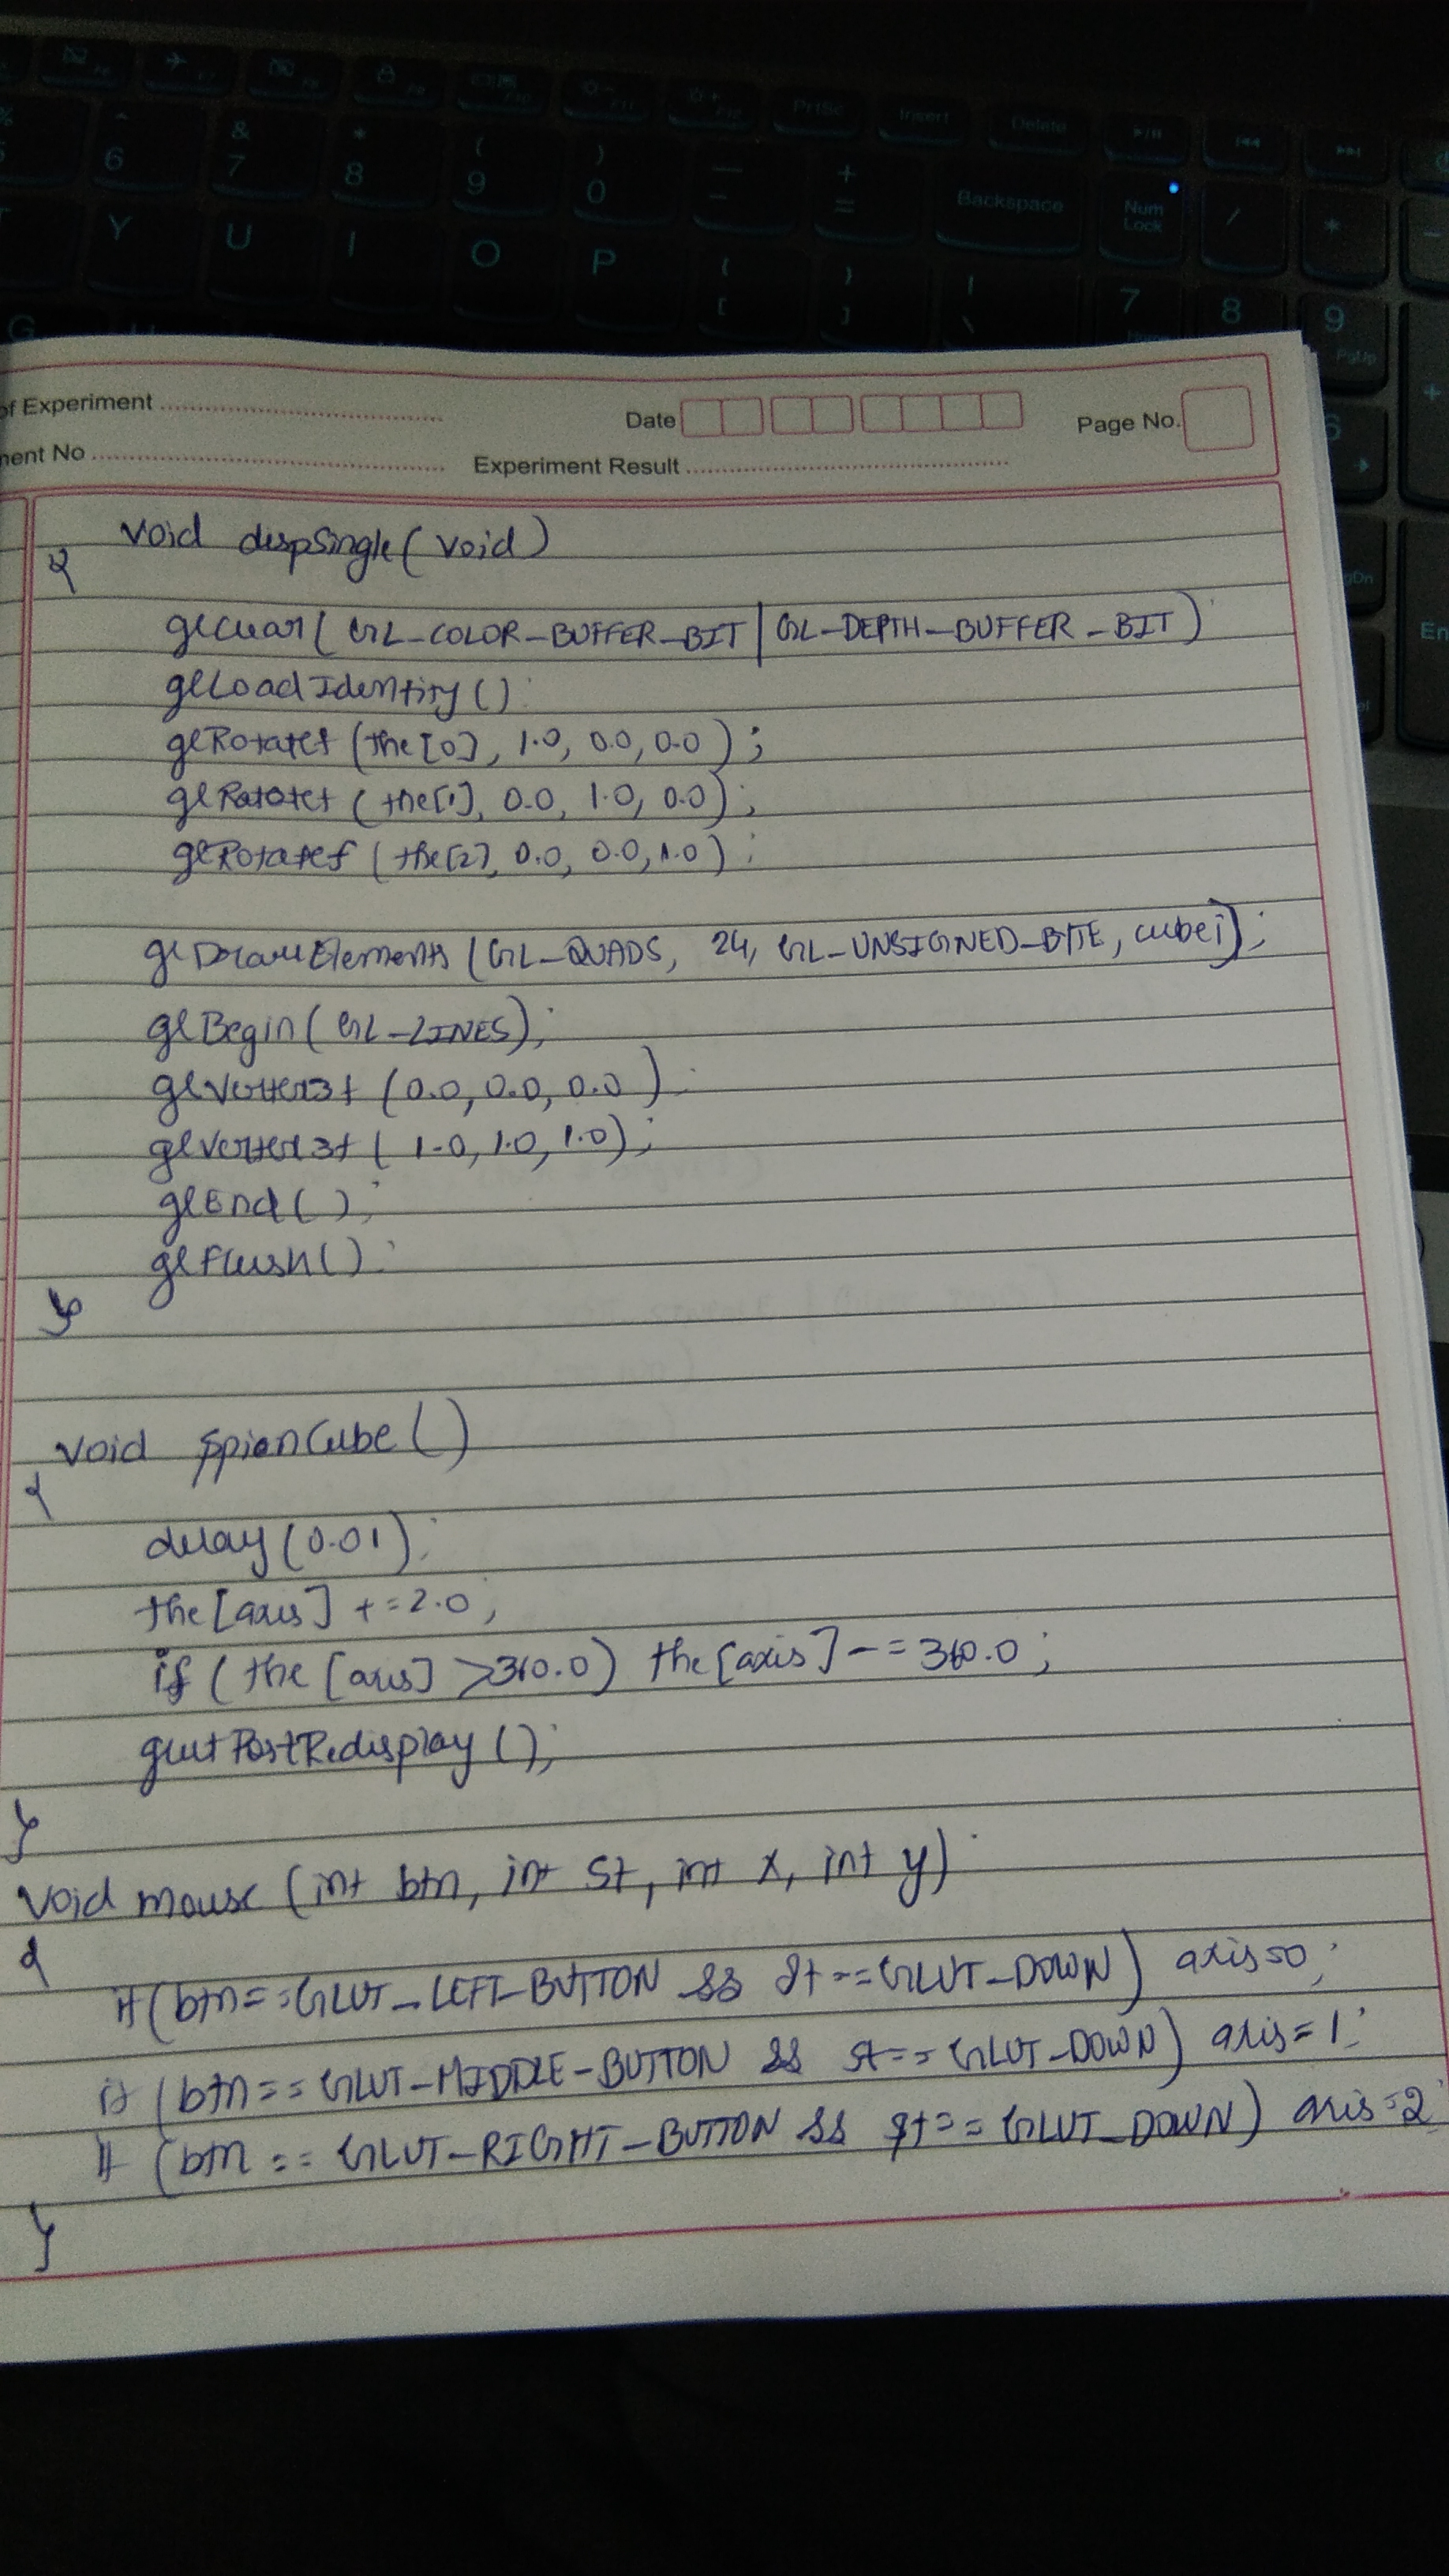 % 5 ^ 6 & 7 * 8 ( 9 ) 0 — - + = Backspace Num Lock / * -
PrtSc Insert Delete
T Y U I O P { [ } ] | \ 7 8 9 PgUp +
G
of Experiment
Date
Page No.
ment No
Experiment Result
void dispSingle(void)
{
glClear(GL_COLOR_BUFFER_BIT|GL_DEPTH_BUFFER_BIT);
glLoadIdentity();
glRotatef(the[0], 1.0, 0.0, 0.0);
glRotatef(the[1], 0.0, 1.0, 0.0);
glRotatef(the[2], 0.0, 0.0, 1.0);
glDrawElements(GL_QUADS, 24, GL_UNSIGNED_BYTE, cubei);
glBegin(GL_LINES);
glVertex3f(0.0, 0.0, 0.0);
glVertex3f(1.0, 1.0, 1.0);
glEnd();
glFlush();
}
void spinCube()
{
delay(0.01);
the[axis] +=2.0;
if(the[axis] >360.0) the[axis] -= 360.0;
glutPostRedisplay();
}
void mouse(int btn, int st, int x, int y)
{
if(btn==GLUT_LEFT_BUTTON && st==GLUT_DOWN) axis=0;
if(btn==GLUT_MIDDLE_BUTTON && st==GLUT_DOWN) axis=1;
if(btn==GLUT_RIGHT_BUTTON && st==GLUT_DOWN) axis=2;
}